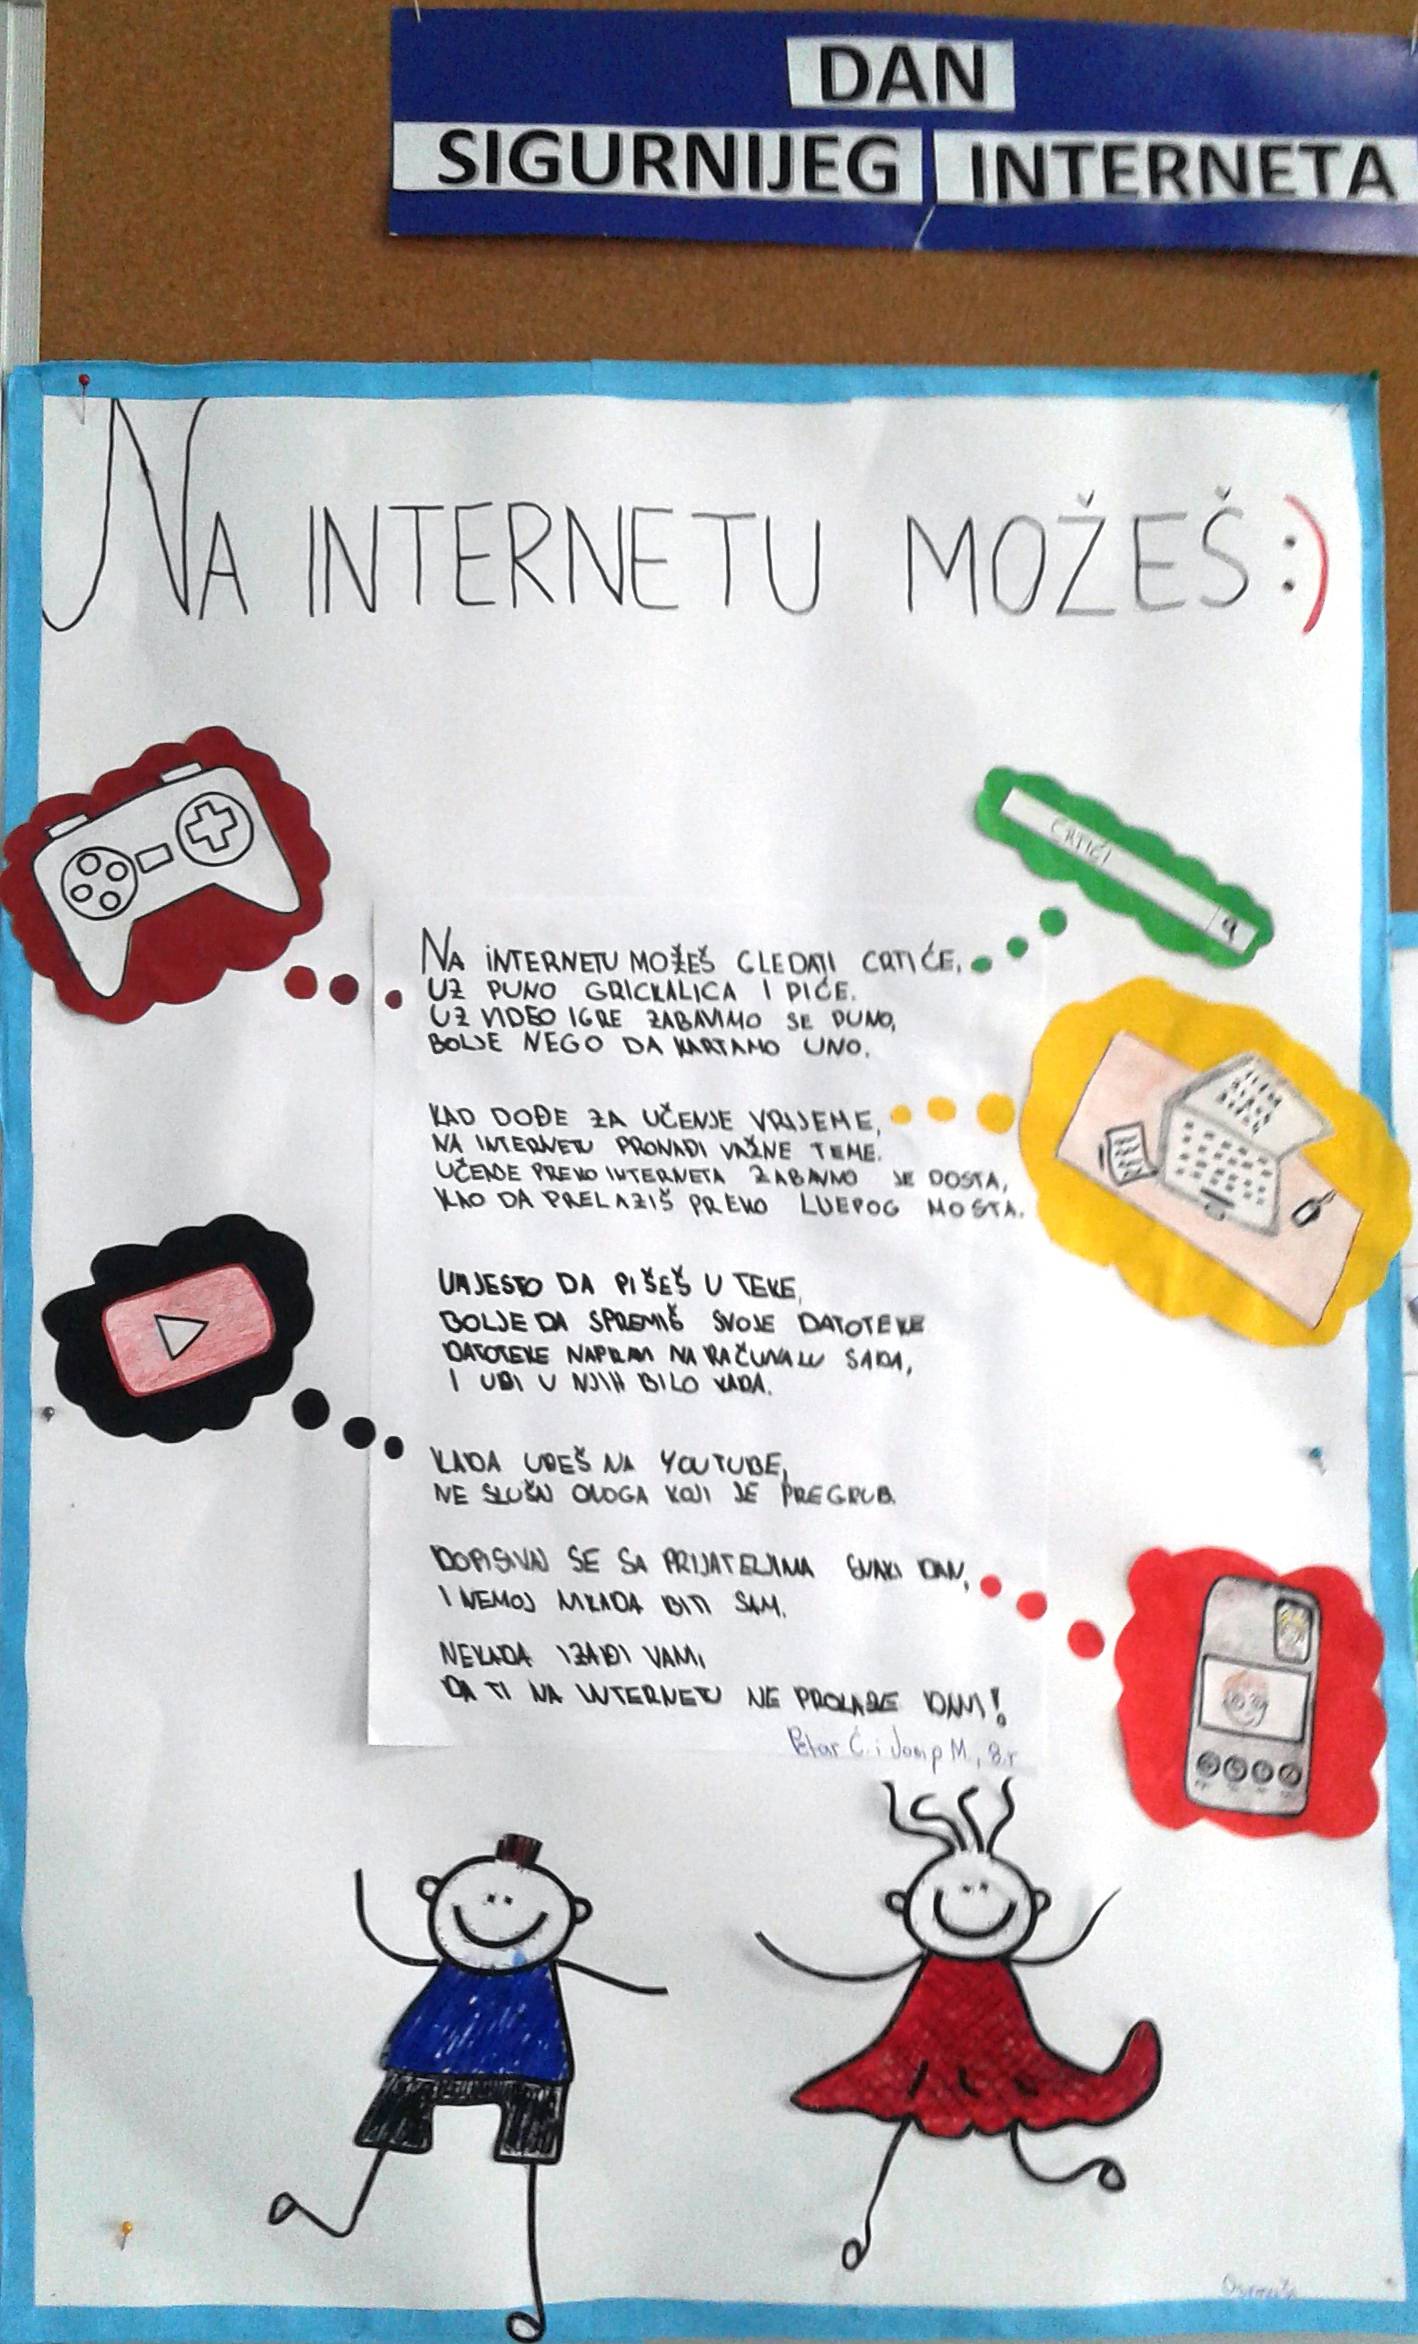 DAN
SIGURNIJEG INTERNETA
NA INTERNETU MOŽEŠ :)
CRTIĆI
NA INTERNETU MOŽEŠ GLEDATI CRTIĆE,
UZ PUNO GRICKALICA I PIĆE.
UZ VIDEO IGRE ZABAVIMO SE PUNO,
BOLJE NEGO DA KARTAMO UNO.
KAD DOĐE ZA UČENJE VRIJEME,
NA INTERNETU PRONAĐI VAŽNE TEME.
UČENJE PREKO INTERNETA ZABAVNO JE DOSTA,
KAO DA PRELAZIŠ PREKO LIJEPOG MOSTA.
UMJESTO DA PIŠEŠ U TEKE,
BOLJE DA SPREMIŠ SVOJE DATOTEKE
DATOTEKE NAPRAVI NA RAČUNALU SADA,
I UĐI U NJIH BILO KADA.
KADA UĐEŠ NA YOUTUBE,
NE SLUŠAJ ONOGA KOJI JE PREGRUB.
DOPISIVAJ SE SA PRIJATELJIMA SVAKI DAN,
I NEMOJ NIKADA BITI SAM.
NEKADA IZAĐI VANI,
DA TI NA INTERNETU NE PROLAZE DANI!
Petar Ć. i Josip M., 8.r